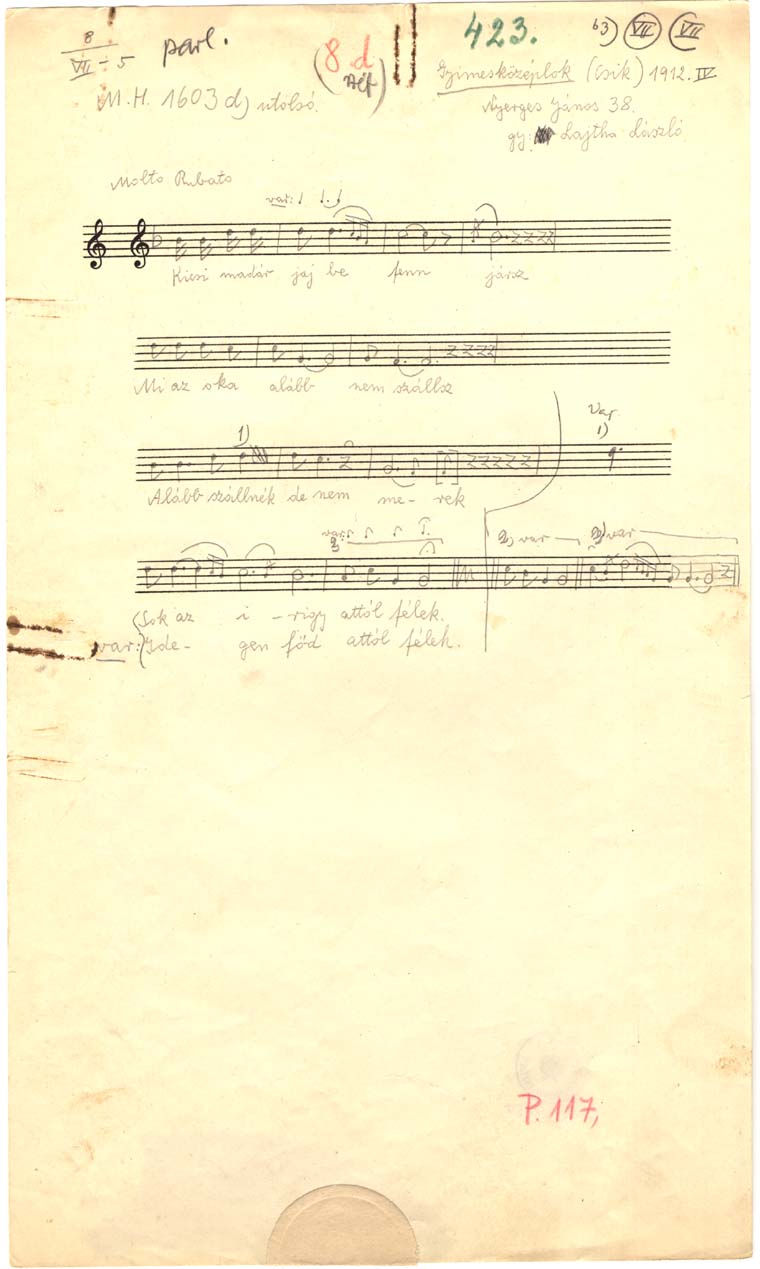 8
VII - 5
parl.
(8 d
Alf)
423.
b3) VII VII
M. H. 1603 d) utolsó.
Gyimesközéplok (Csik) 1912. IV
Nyerges János 38.
gy: Lajtha László
Molto Rubato
var:
Kicsi madár jaj be fenn jársz
Mi az oka alább nem szállsz
1)
Var.
1)
Alább szállnék de nem me- rek
var:
2) var
3) var
(Sok az i - rigy attól félek.
var: (Ide- gen föd attól félek.
P. 117,